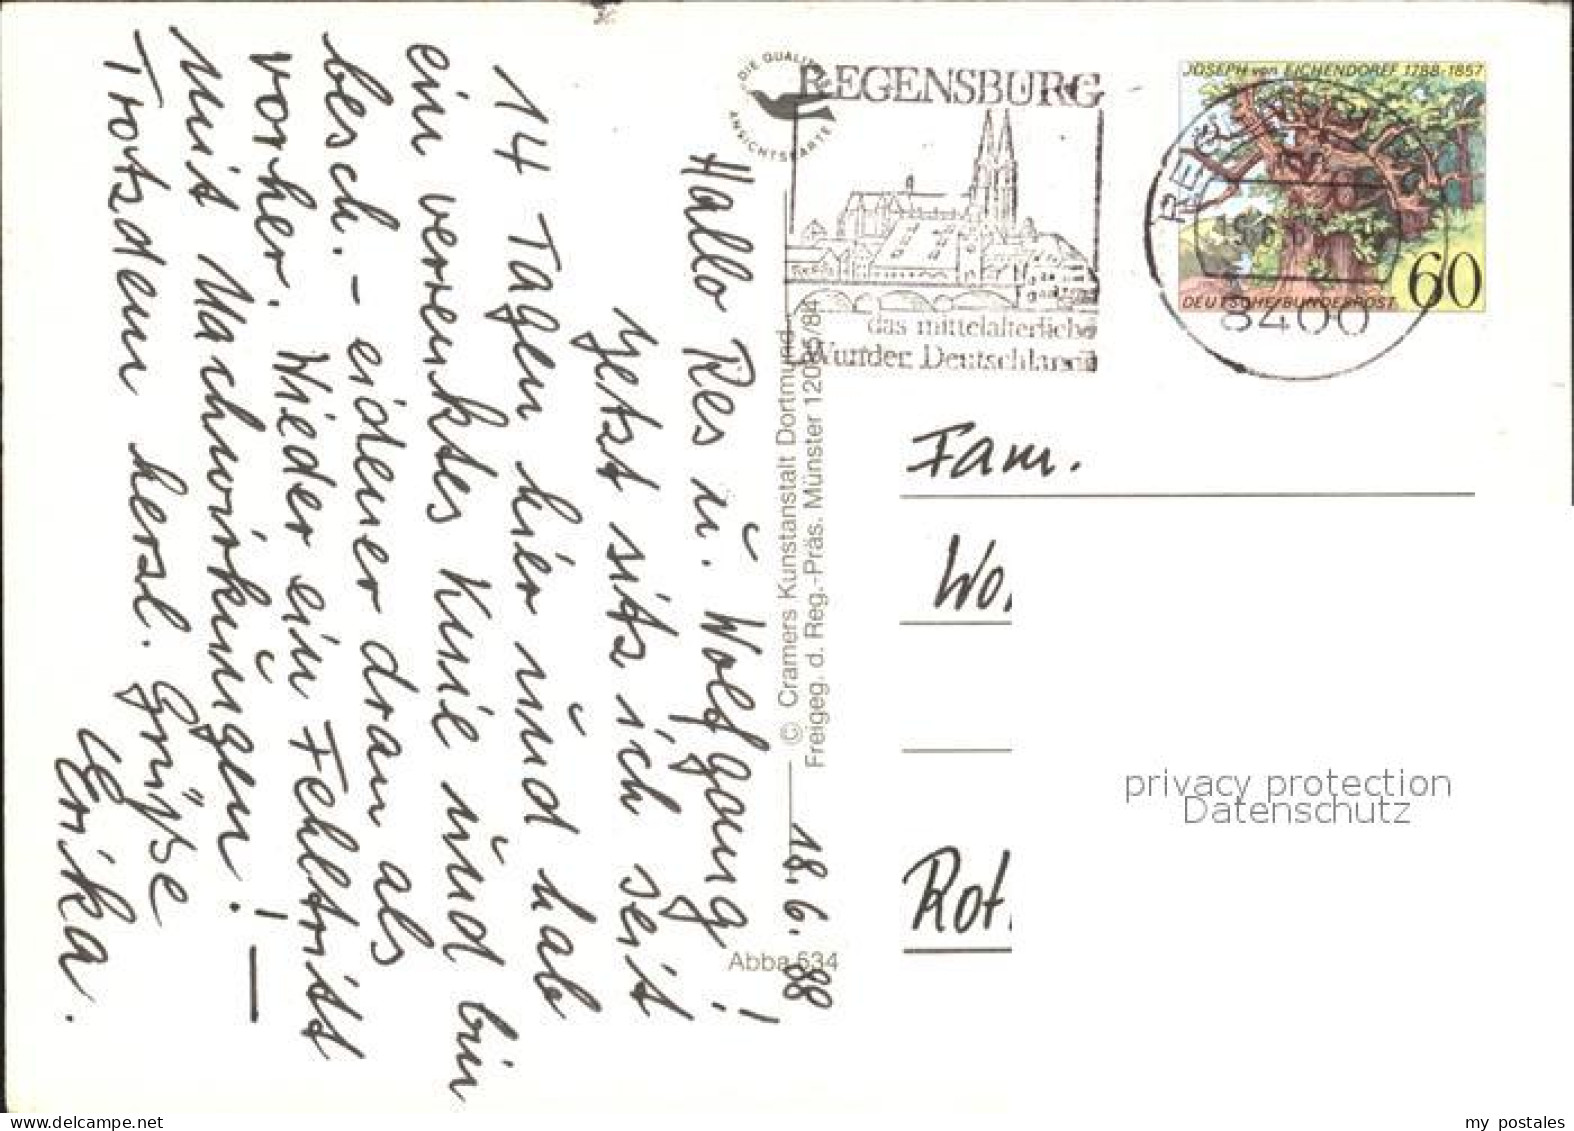 18.6.88
Hallo Res u. Wolfgang!
Jetzt sitz ich seit
14 Tagen hier und hab
ein verrenktes Knie und bin
besch. – eidener dran als
vorher. Wieder ein Fehltritt
mit Nachwirkungen! —
Trotzdem herzl. Grüße
Erika.
DIE QUALITÄTS
ANSICHTSKARTE
© Cramers Kunstanstalt Dortmund
Freigeg. d. Reg.-Präs. Münster
Abba 534
REGENSBURG
das mittelalterliche
Wunder Deutschlands
JOSEPH von EICHENDORFF 1788-1857
DEUTSCHE BUNDESPOST 60
8400
Fam.
Wo
Rot
privacy protection
Datenschutz
my postales